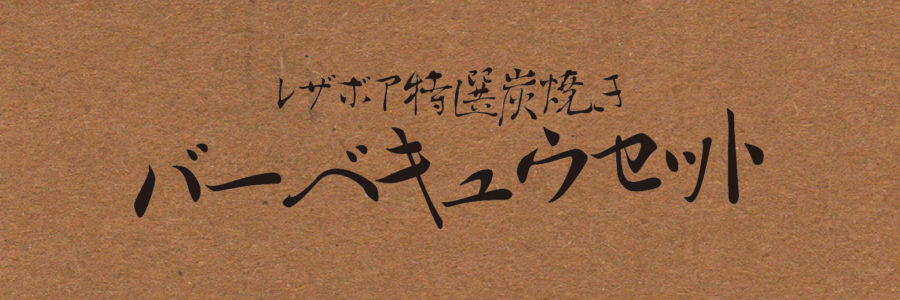 レザボア特選炭焼き
バーベキュウセット